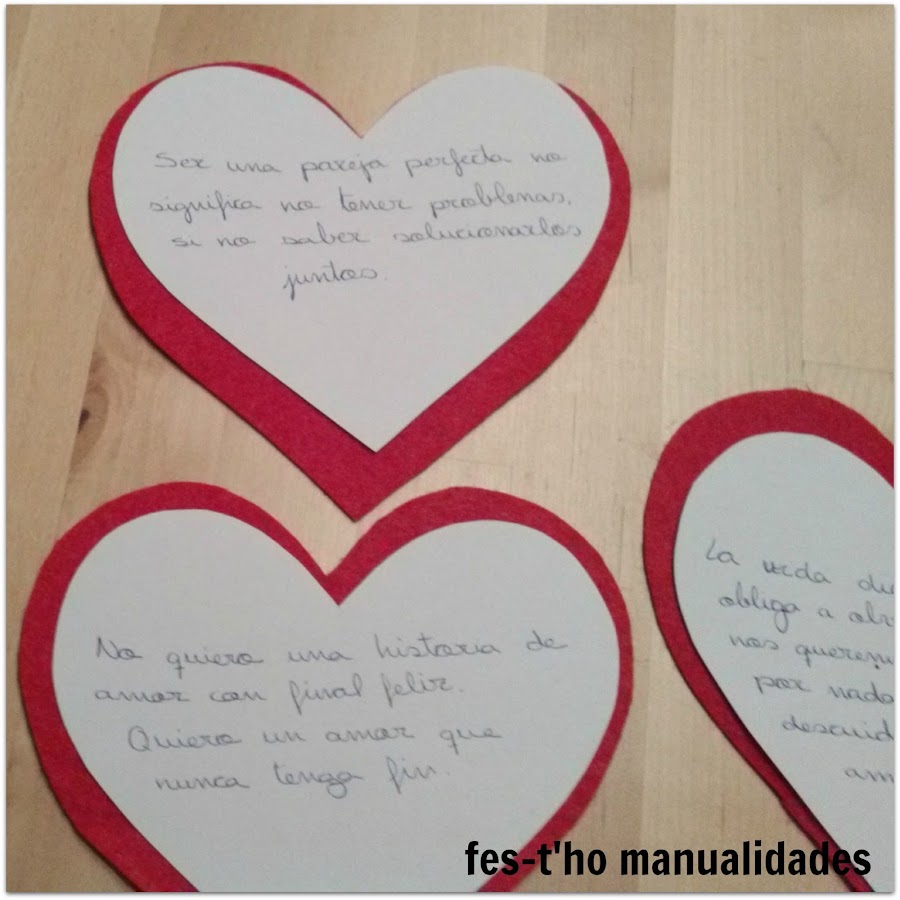 Ser una pareja perfecta no
significa no tener problemas,
si no saber solucionarlos
juntos.
No quiero una historia de
amor con final feliz.
Quiero un amor que
nunca tenga fin.
La vida
obliga a
nos
por nada
fes-t'ho manualidades